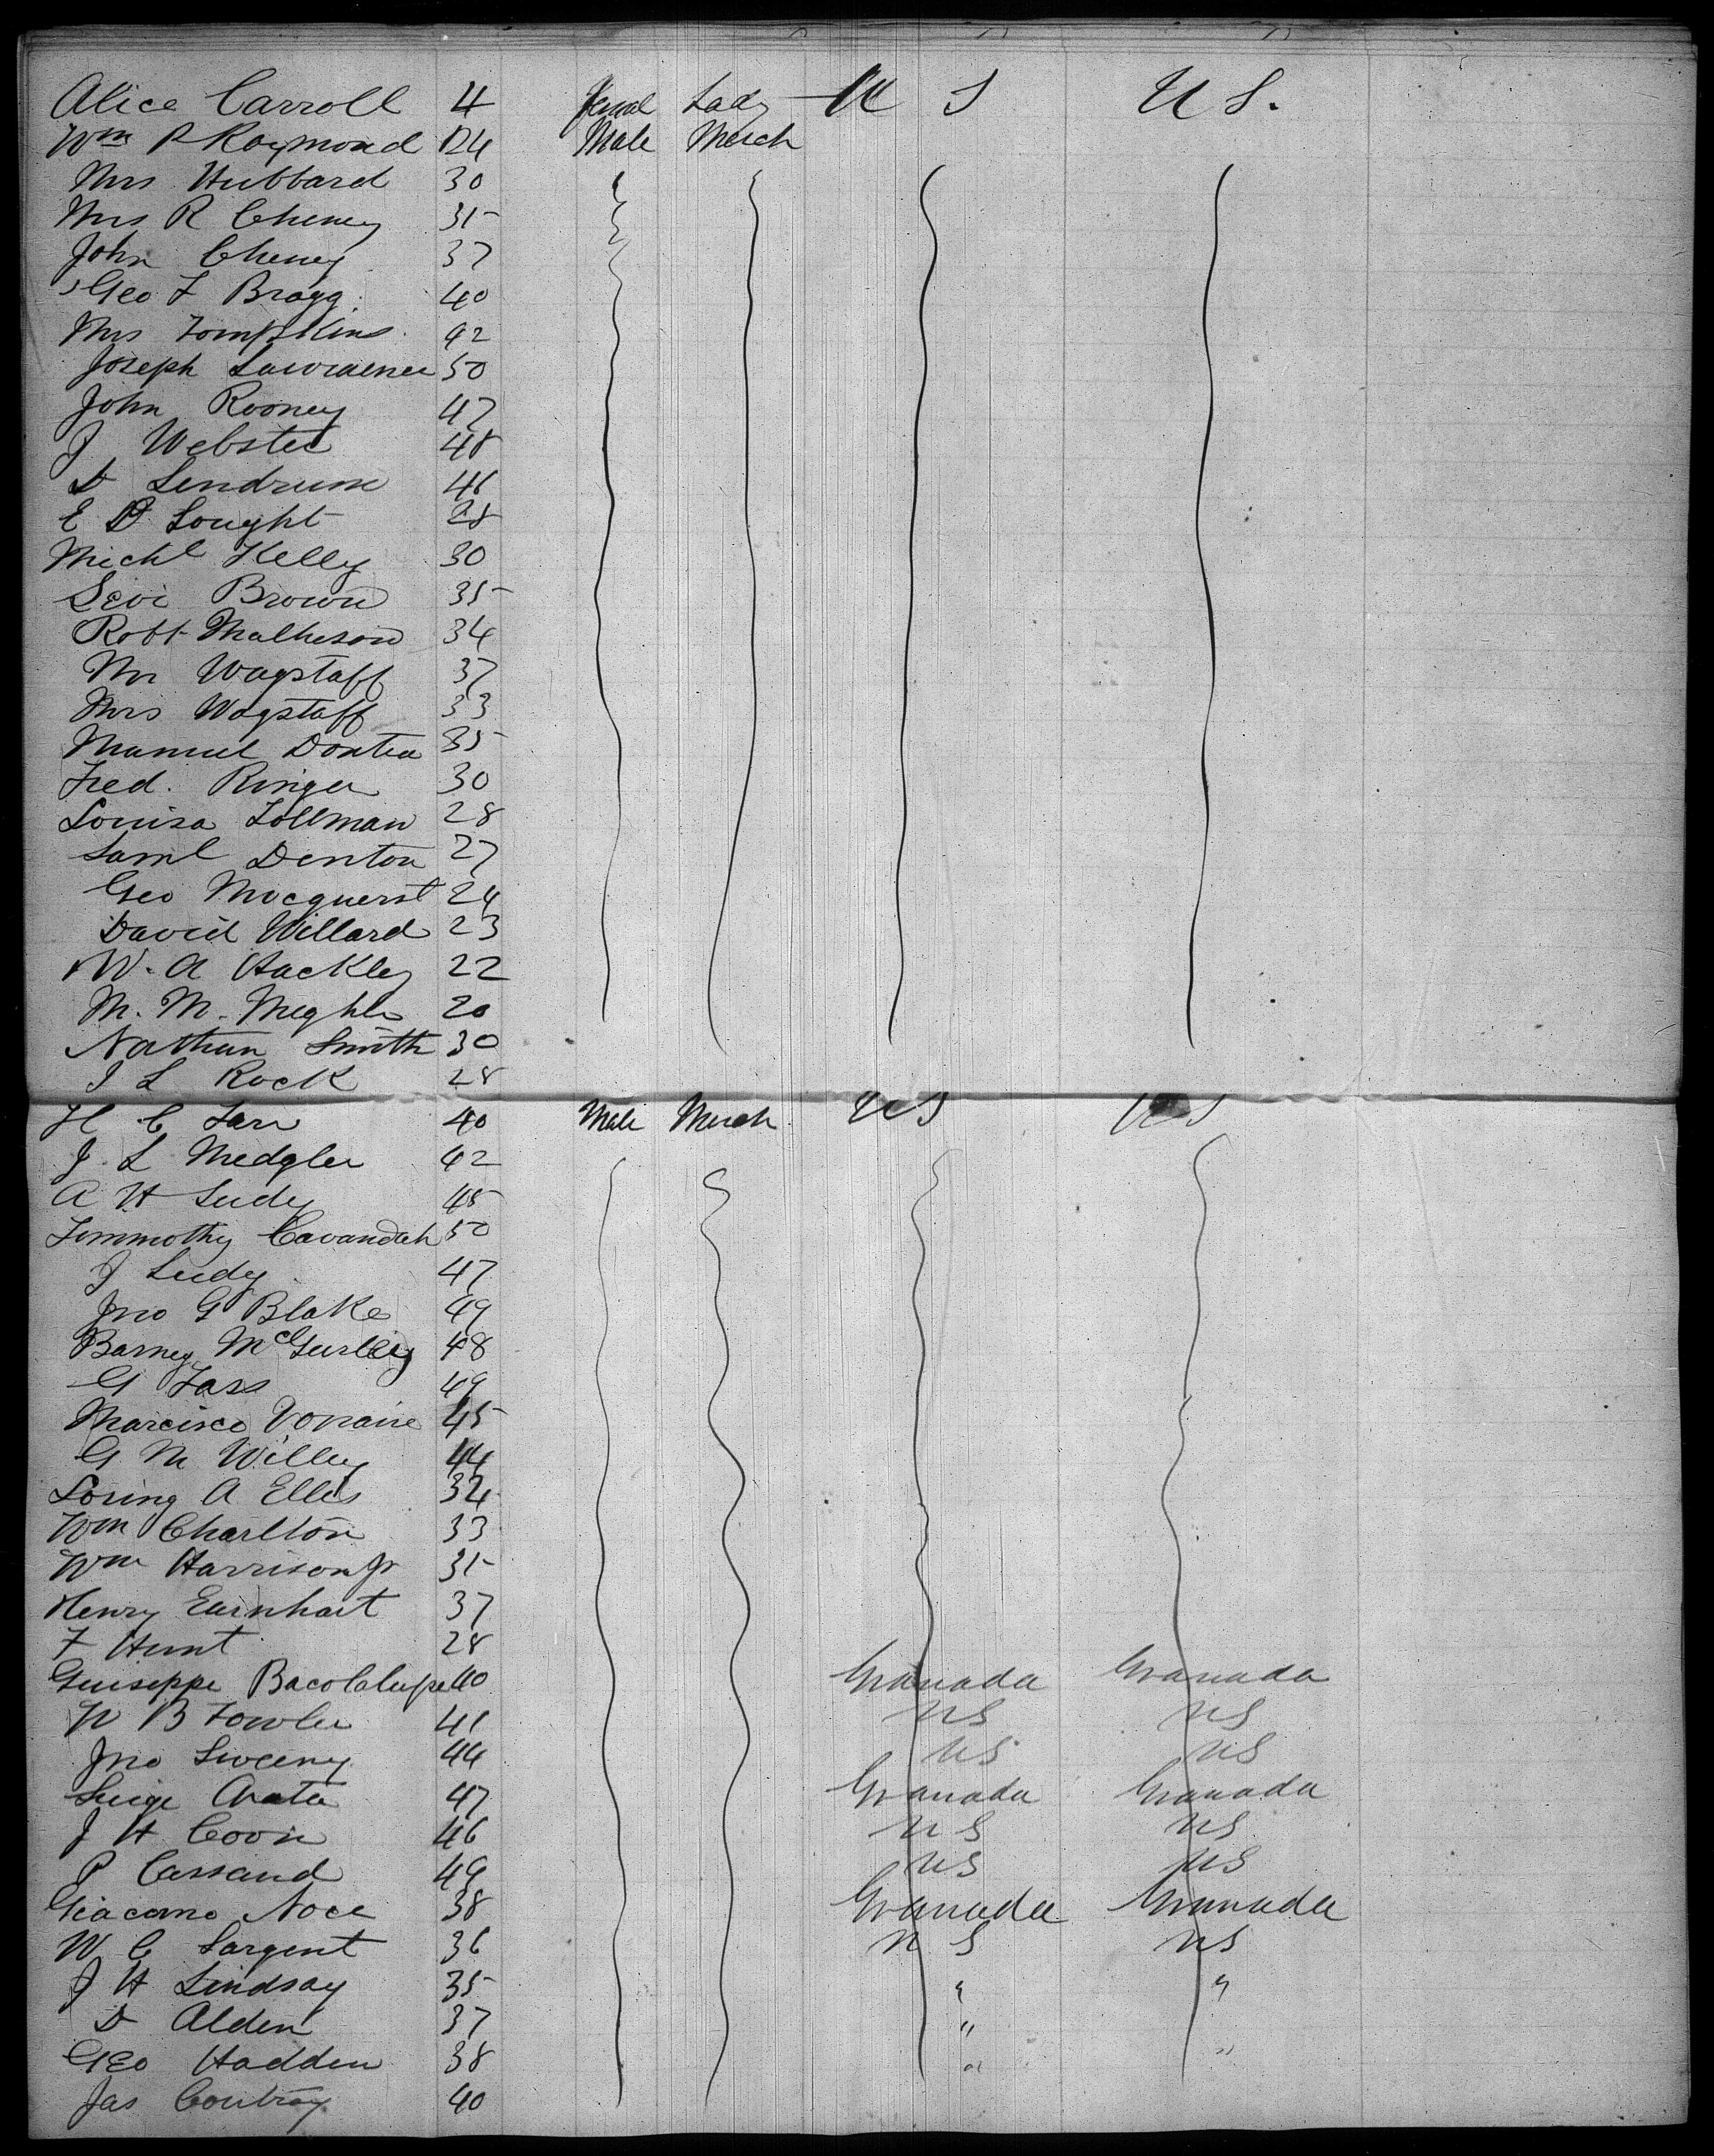 Alice Carroll 4 Femal Lady U S U S.
Wm P Raymond 24 Male Merch
Mrs Hubbard 30
Mrs R Cheney 35
John Cheney 37
Geo F Bragg 40
Mrs Tompkins 42
Joseph Lawraence 50
John Rooney 47
J Webster 48
D Lendrum 46
E D Lought 28
Michl Kelly 30
Levi Brown 35
Robt Matheson 34
Mr Wagstaff 37
Mrs Wagstaff 33
Manuel 35
Fred. Ringer 30
Louisa Tollman 28
Saml Denton 27
Geo 24
David Willard 23
W. A Hackley 22
M. M. 20
Nathan Smith 30
J L Rock 28
H C Farr 40 Male Merch U S U S
J. L Medgler 42
A H Ludy 45
Timmothy Cavandah 50
J Ludy 47
Jno G Blake 49
Barney McGurley 48
G Fass 49
45
G M Willey 44
Loring A Ellis 34
Wm Charlton 33
Wm Harrison Jr 35
Henry Earnhart 37
F Hunt 28
Guiseppe 40 Granada Granada
W B Fowler 41 U S U S
Jno Sweeny 44 U S U S
Luige Arata 47 Granada Granada
J H Coon 46 U S U S
P Cassand 49 U S U S
Giacomo Noce 38 Granada Granada
W C Sargent 36 U S U S
J H Lindsay 35 " "
D Alden 37 "
Geo Hadden 38 " "
Jas 40